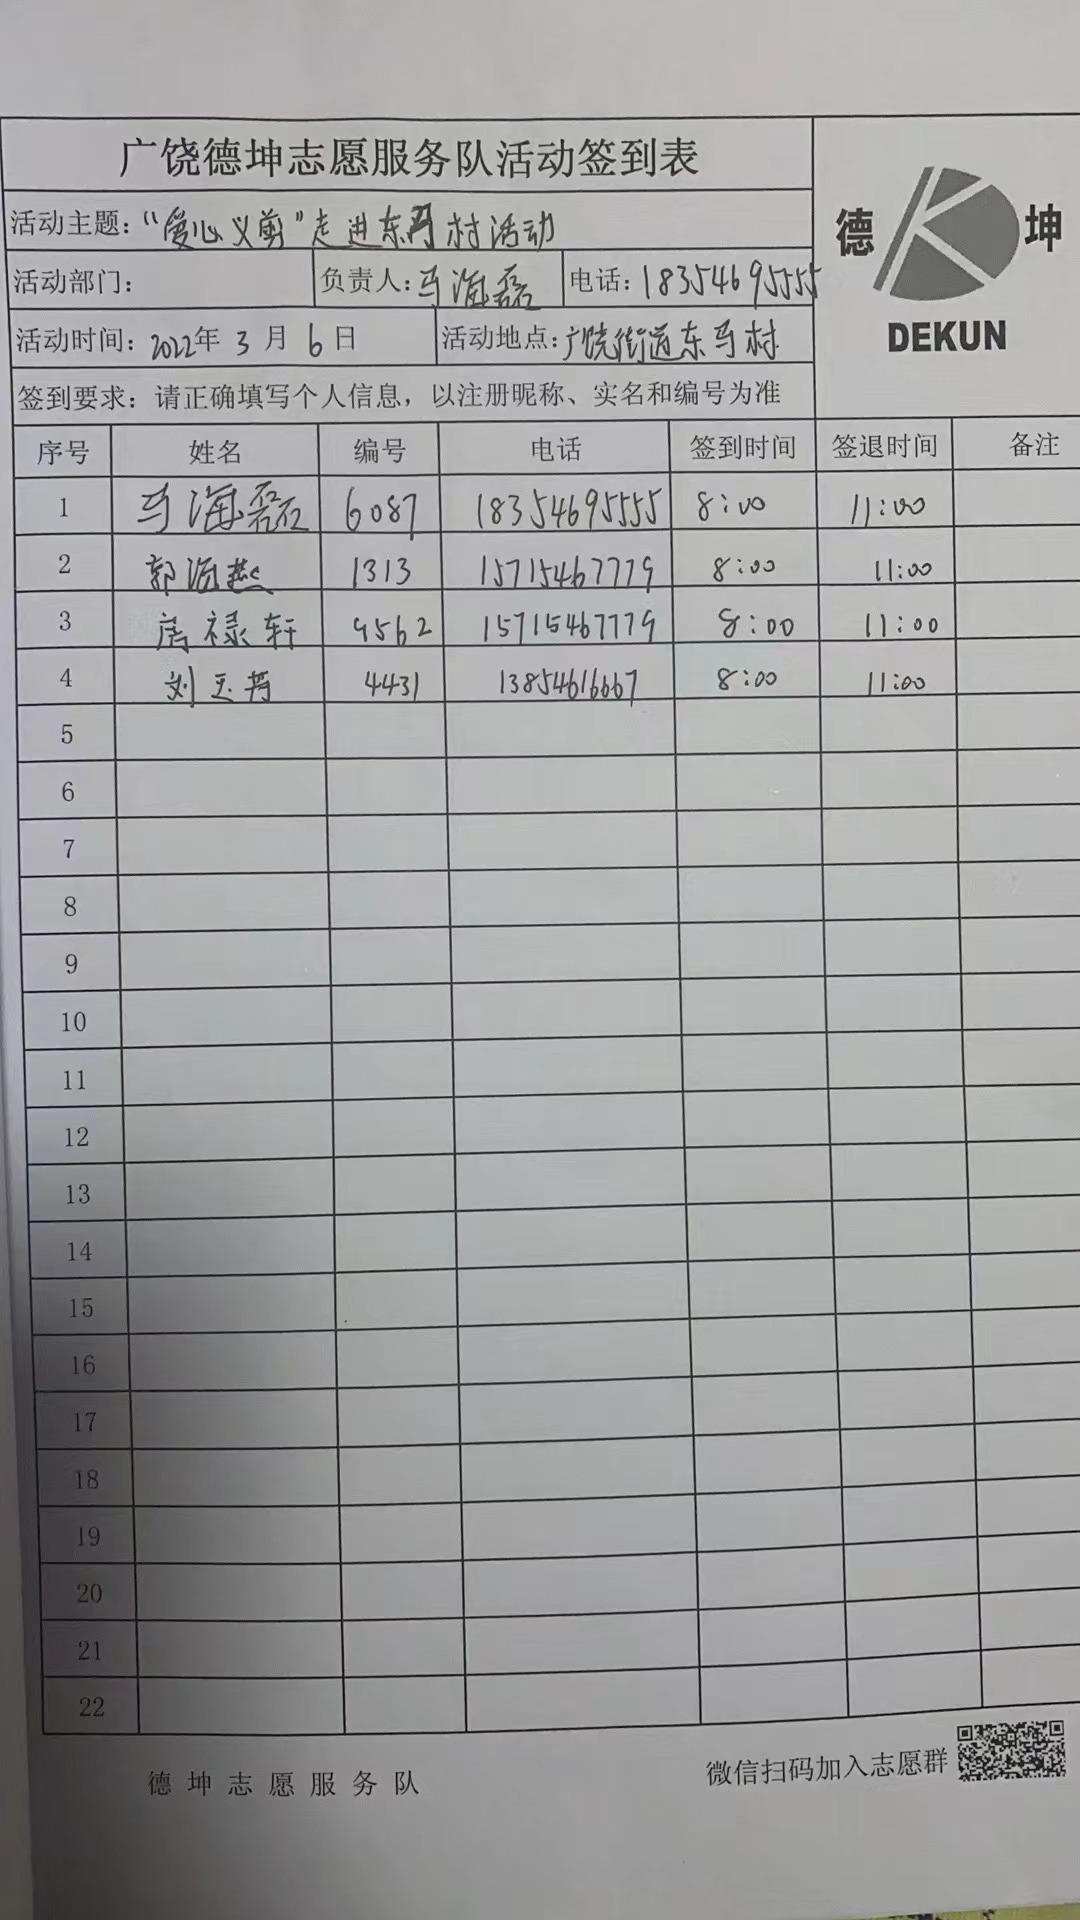 广饶德坤志愿服务队活动签到表
德 坤
DEKUN
活动主题：“爱心义剪”走进东马村活动
活动部门： 负责人：马海磊 电话：18354695555
活动时间：2022年 3 月 6 日 活动地点：广饶街道东马村
签到要求：请正确填写个人信息，以注册昵称、实名和编号为准
序号 姓名 编号 电话 签到时间 签退时间 备注
1 马海磊 6087 18354695555 8:00 11:00
2 郭海燕 1313 15715467779 8:00 11:00
3 房禄轩 9562 15715467779 8:00 11:00
4 刘玉 4431 13854616667 8:00 11:00
5
6
7
8
9
10
11
12
13
14
15
16
17
18
19
20
21
22
德坤志愿服务队 微信扫码加入志愿群